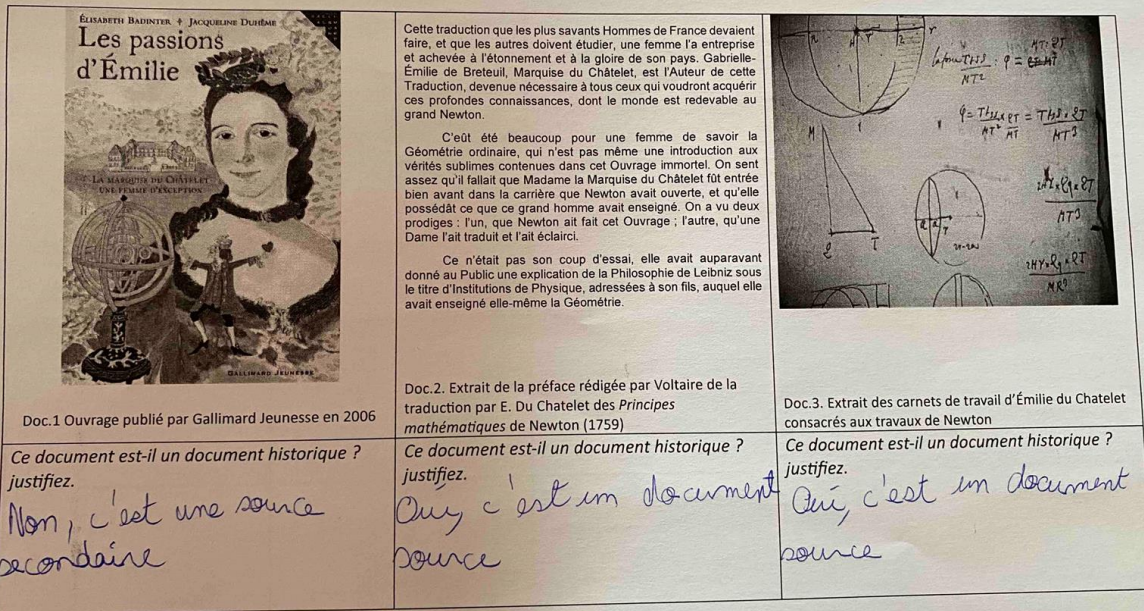 ÉLISABETH BADINTER ✦ JACQUELINE DUHÊME
Les passions
d'Émilie
LA MARQUISE DU CHÂTELET
UNE FEMME D'EXCEPTION
GALLIMARD JEUNESSE
Doc.1 Ouvrage publié par Gallimard Jeunesse en 2006
Ce document est-il un document historique ?
justifiez.
Non, c'est une source
secondaire
Cette traduction que les plus savants Hommes de France devaient
faire, et que les autres doivent étudier, une femme l'a entreprise
et achevée à l'étonnement et à la gloire de son pays. Gabrielle-
Émilie de Breteuil, Marquise du Châtelet, est l'Auteur de cette
Traduction, devenue nécessaire à tous ceux qui voudront acquérir
ces profondes connaissances, dont le monde est redevable au
grand Newton.
C'eût été beaucoup pour une femme de savoir la
Géométrie ordinaire, qui n'est pas même une introduction aux
vérités sublimes contenues dans cet Ouvrage immortel. On sent
assez qu'il fallait que Madame la Marquise du Châtelet fût entrée
bien avant dans la carrière que Newton avait ouverte, et qu'elle
possédât ce que ce grand homme avait enseigné. On a vu deux
prodiges : l'un, que Newton ait fait cet Ouvrage ; l'autre, qu'une
Dame l'ait traduit et l'ait éclairci.
Ce n'était pas son coup d'essai, elle avait auparavant
donné au Public une explication de la Philosophie de Leibniz sous
le titre d'Institutions de Physique, adressées à son fils, auquel elle
avait enseigné elle-même la Géométrie.
Doc.2. Extrait de la préface rédigée par Voltaire de la
traduction par E. Du Chatelet des Principes
mathématiques de Newton (1759)
Ce document est-il un document historique ?
justifiez.
Oui, c'est un document
source
Doc.3. Extrait des carnets de travail d'Émilie du Chatelet
consacrés aux travaux de Newton
Ce document est-il un document historique ?
justifiez.
Oui, c'est un document
source